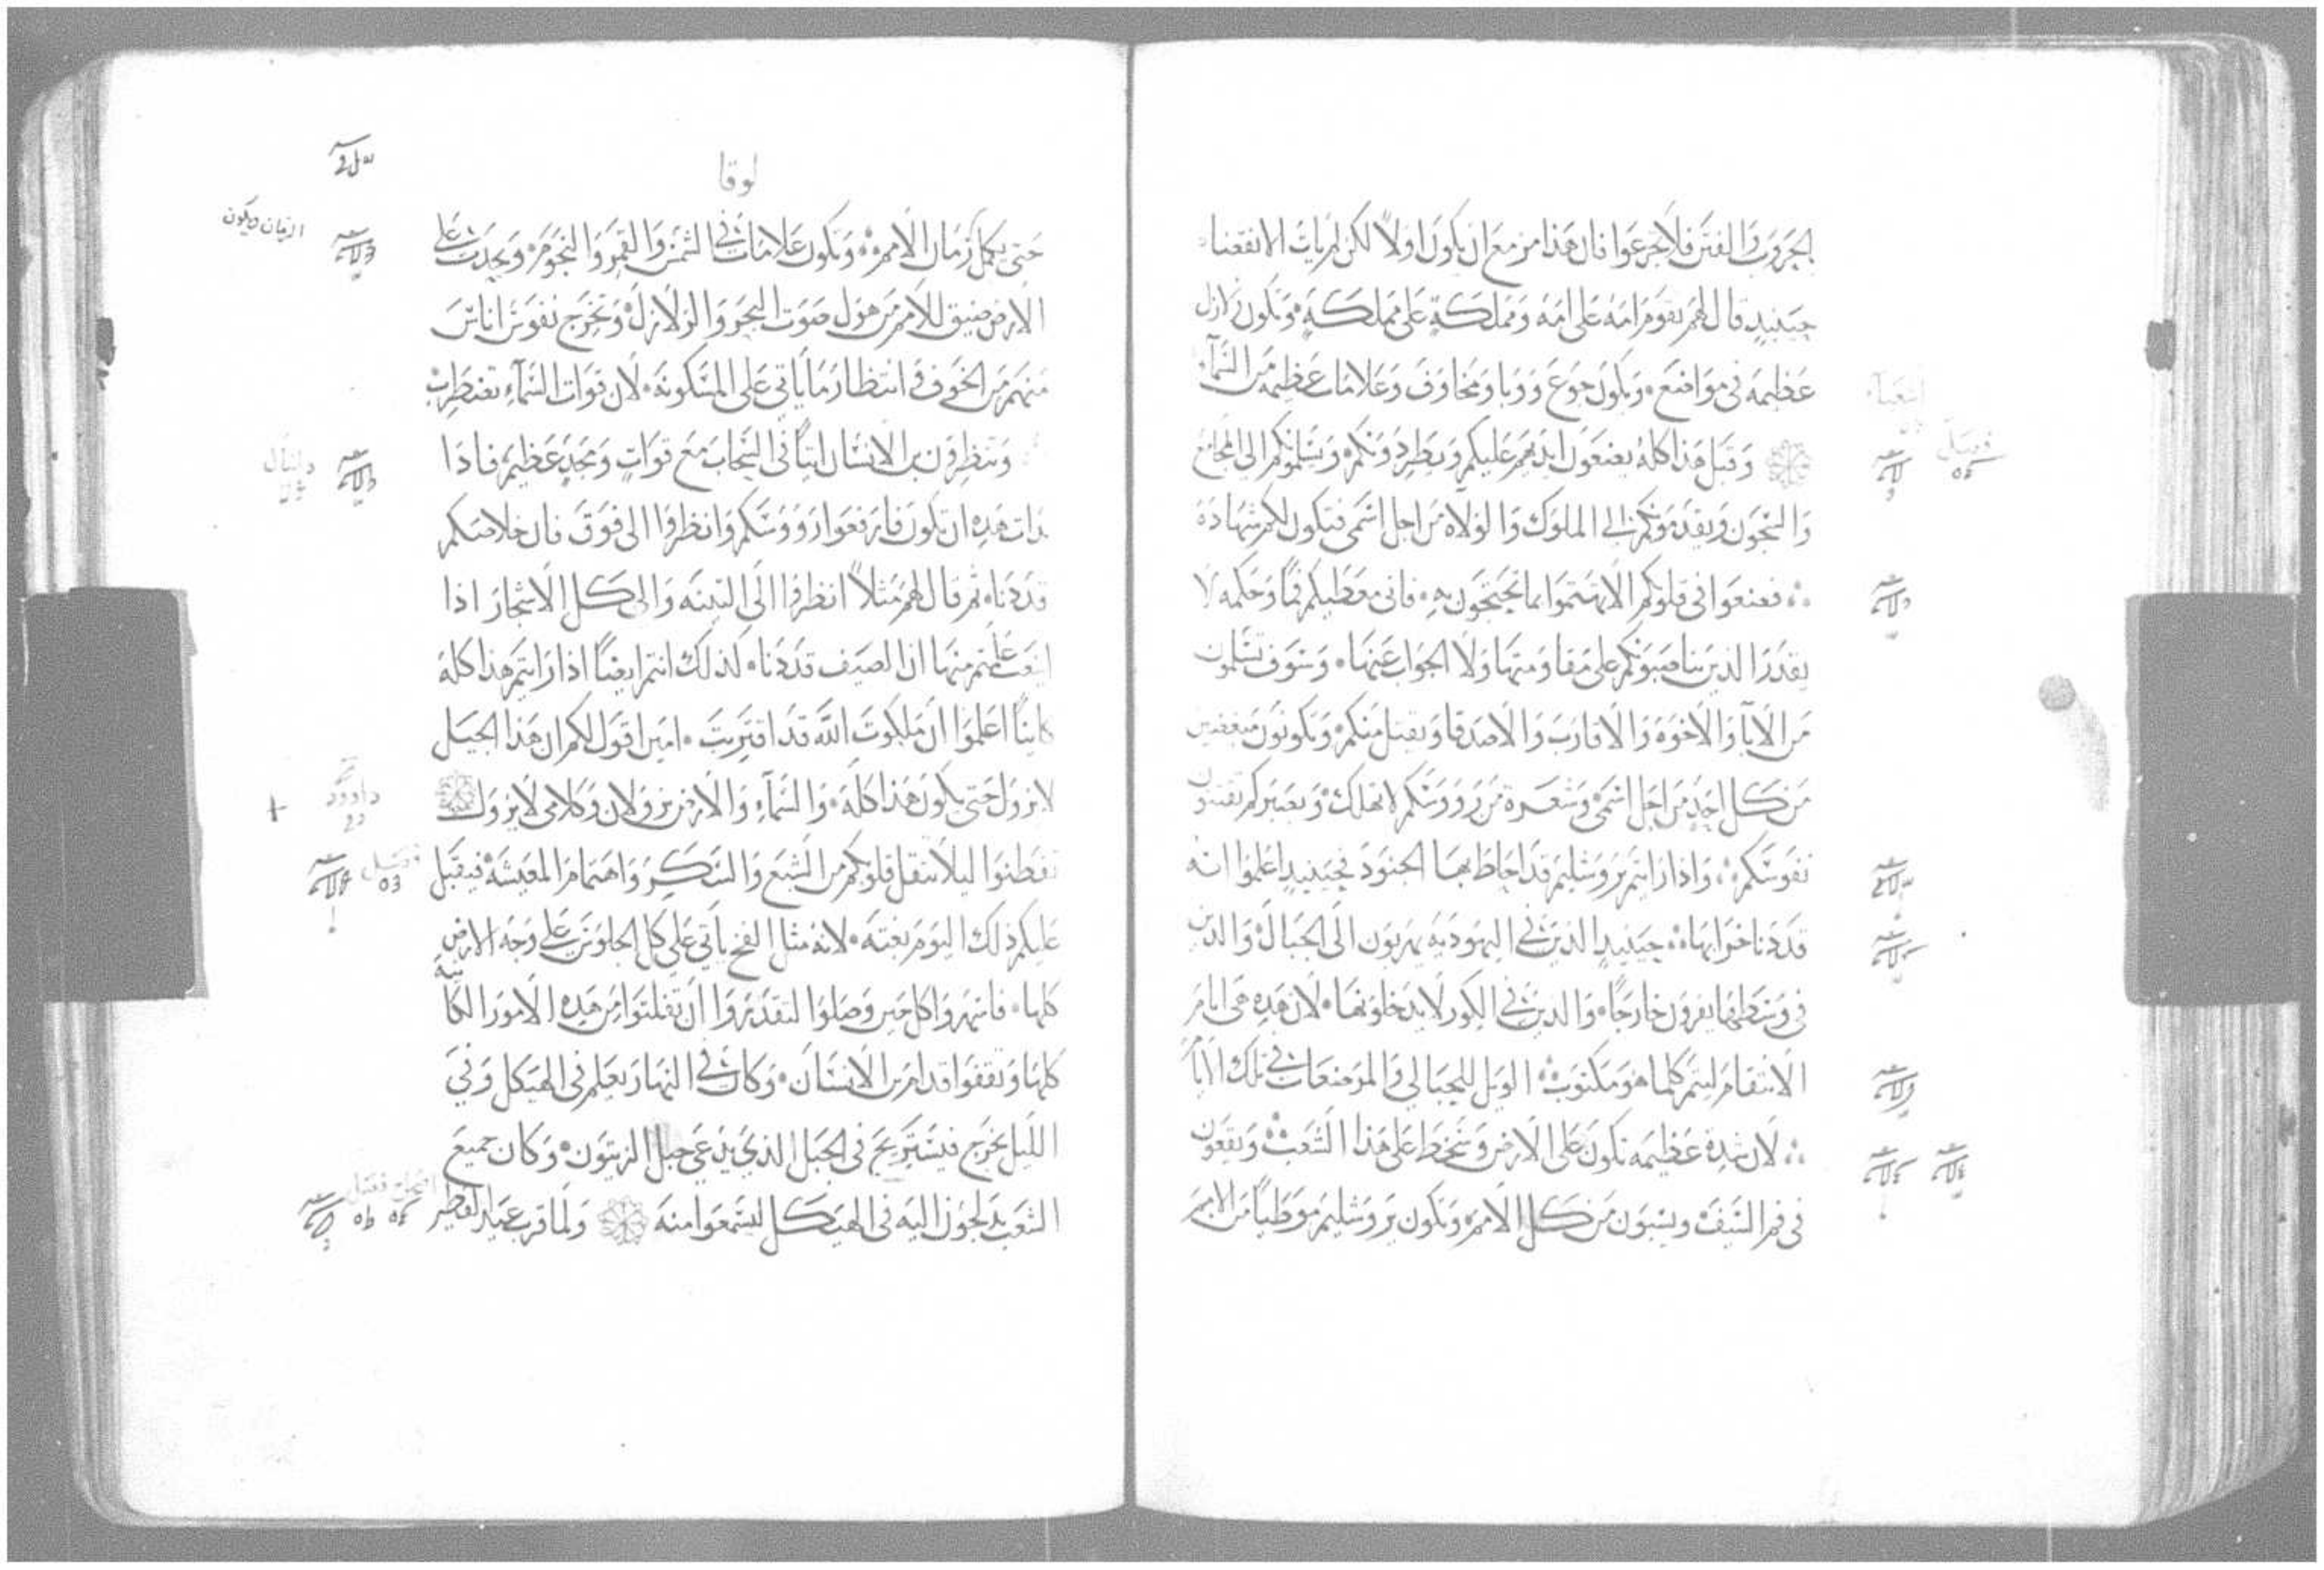 الحروب والفتن فلا تجزعوا فان هذا مزمع ان يكون اولاً لكن لم يات الانقضاء
حينيدٍ قال لهم تقوم امه على امه ومملكةٍ على مملكةٍ وتكون زلازل
عظيمه في مواضع ويكون جوع ووبا ومخاوف وعلامات عظيمه من السماء
وقبل هذا كله يضعون ايديهم عليكم ويطردونكم ويسلمونكم الى المجامع
والسجون ويقدمونكم الى الملوك والولاه من اجل اسمي فتكون لكم شهادة
فضعوا في قلوبكم الا تهتموا بما تحتجون به فاني معطيكم فماً وحكمه لا
يقدر الذين يناصبونكم على مقاومتها ولا الجواب عنها وسوف تسلمون
من الابآ والاخوه والاقارب والاصدقا ويقتل منكم وتكونون مبغضين
من كل احدٍ من اجل اسمي وشعرة من رووسكم لا تهلك وبصبركم تقتنون
نفوسكم واذا رايتم يروشليم قد احاط بها الجنود فحينيدٍ اعلموا انه
قد دنا خرابها حينيدٍ الذين في اليهوديه يهربون الى الجبال والذين
في وسطها يفرون خارجاً والذين في الكور لا يدخلونها لان هذه هي ايام
الانتقام ليتم كلما هو مكتوب الويل للحبالي والمرضعات في تلك الايام
لان شدة عظيمه تكون على الارض وسخط على هذا الشعب ويقعون
في فم السيف ويسبون من كل الامم وتكون يروشليم موطياً من الامم
لوقا
حتى يكمل زمان الامم وتكون علامات في الشمس والقمر والنجوم ويحدث على
الارض ضيق للامم من هول صوت البحر والزلازل وتخرج نفوس اناس
منهم من الخوف وانتظار ما ياتي على المسكونه لان قوات السماء تضطرب
وتنظرون بن الانسان اتياً في السحاب مع قواتٍ ومجدٍ عظيم فاذا
بدات هذه ان تكون فارفعوا رووسكم وانظروا الى فوق فان خلاصكم
قد دنا ثم قال لهم مثلاً انظروا الى التينه والى كل الاشجار اذا
اينعت علمتم منها ان الصيف قد دنا كذلك انتم ايضاً اذا رايتم هذا كله
كايناً اعلموا ان ملكوت الله قد اقتربت امين اقول لكم ان هذا الجيل
لا يزول حتى يكون هذا كله والسماء والارض يزولان وكلامي لا يزول
تفطنوا ليلا تثقل قلوبكم من الشبع والسكر واهتمام المعيشه فيقبل
عليكم ذلك اليوم بغته لانه مثل الفخ ياتي على كل الجلوس على وجه الارض
كلها فاسهروا كل حين وصلوا لتقدروا ان تفلتوا من هذه الامور الكاينه
كلها وتقفوا قدام بن الانسان وكان في النهار يعلم في الهيكل وفي
الليل يخرج فيستريح في الجبل الذي يدعى جبل الزيتون وكان جميع
الشعب يدلجون اليه في الهيكل ليسمعوا منه ولما قرب عيد الفطير